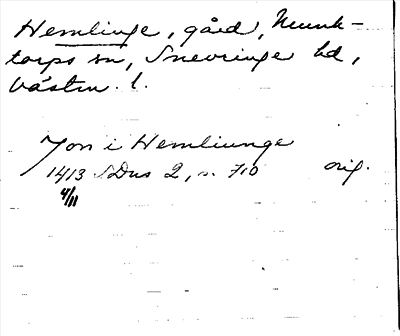 Hemlinge, gård, Munk-
torps sn, Snevringe hd,
Västm. l.
Jon i Hemliunge
1413 SDns 2, s. 710 orig.
4/11